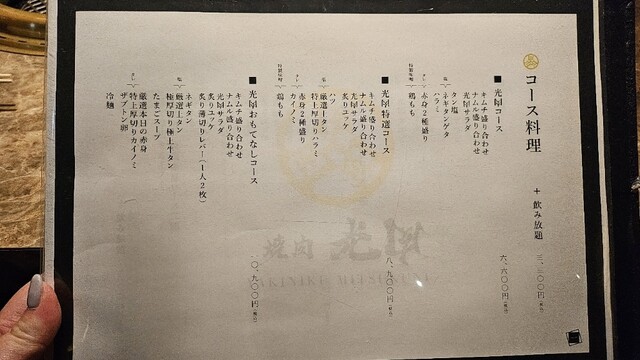 コース料理
+ 飲み放題 三、三〇〇円(税込)
■ 光屋コース 六、六〇〇円(税込)
キムチ盛り合わせ
ナムル盛り合わせ
光屋サラダ
塩
タン塩
ネギタンゲタ
ハラミ
タレ
赤身2種盛り
特製味噌
鶏もも
■ 光屋特選コース 八、九〇〇円(税込)
キムチ盛り合わせ
ナムル盛り合わせ
光屋サラダ
炙りユッケ
塩
厳選上タン
特上厚切りハラミ
ハツ
タレ
赤身2種盛り
カイノミ
特製味噌
鶏もも
■ 光屋おもてなしコース 一〇、九〇〇円(税込)
キムチ盛り合わせ
ナムル盛り合わせ
光屋サラダ
炙りユッケ
炙り薄切りレバー(一人2枚)
ネギタン
塩
厳選上タン
極厚切り極上牛タン
たまごスープ
タレ
厳選本日の赤身
特上厚切りカイノミ
ザブトン 卵
冷麺
焼肉
YAKINIKU